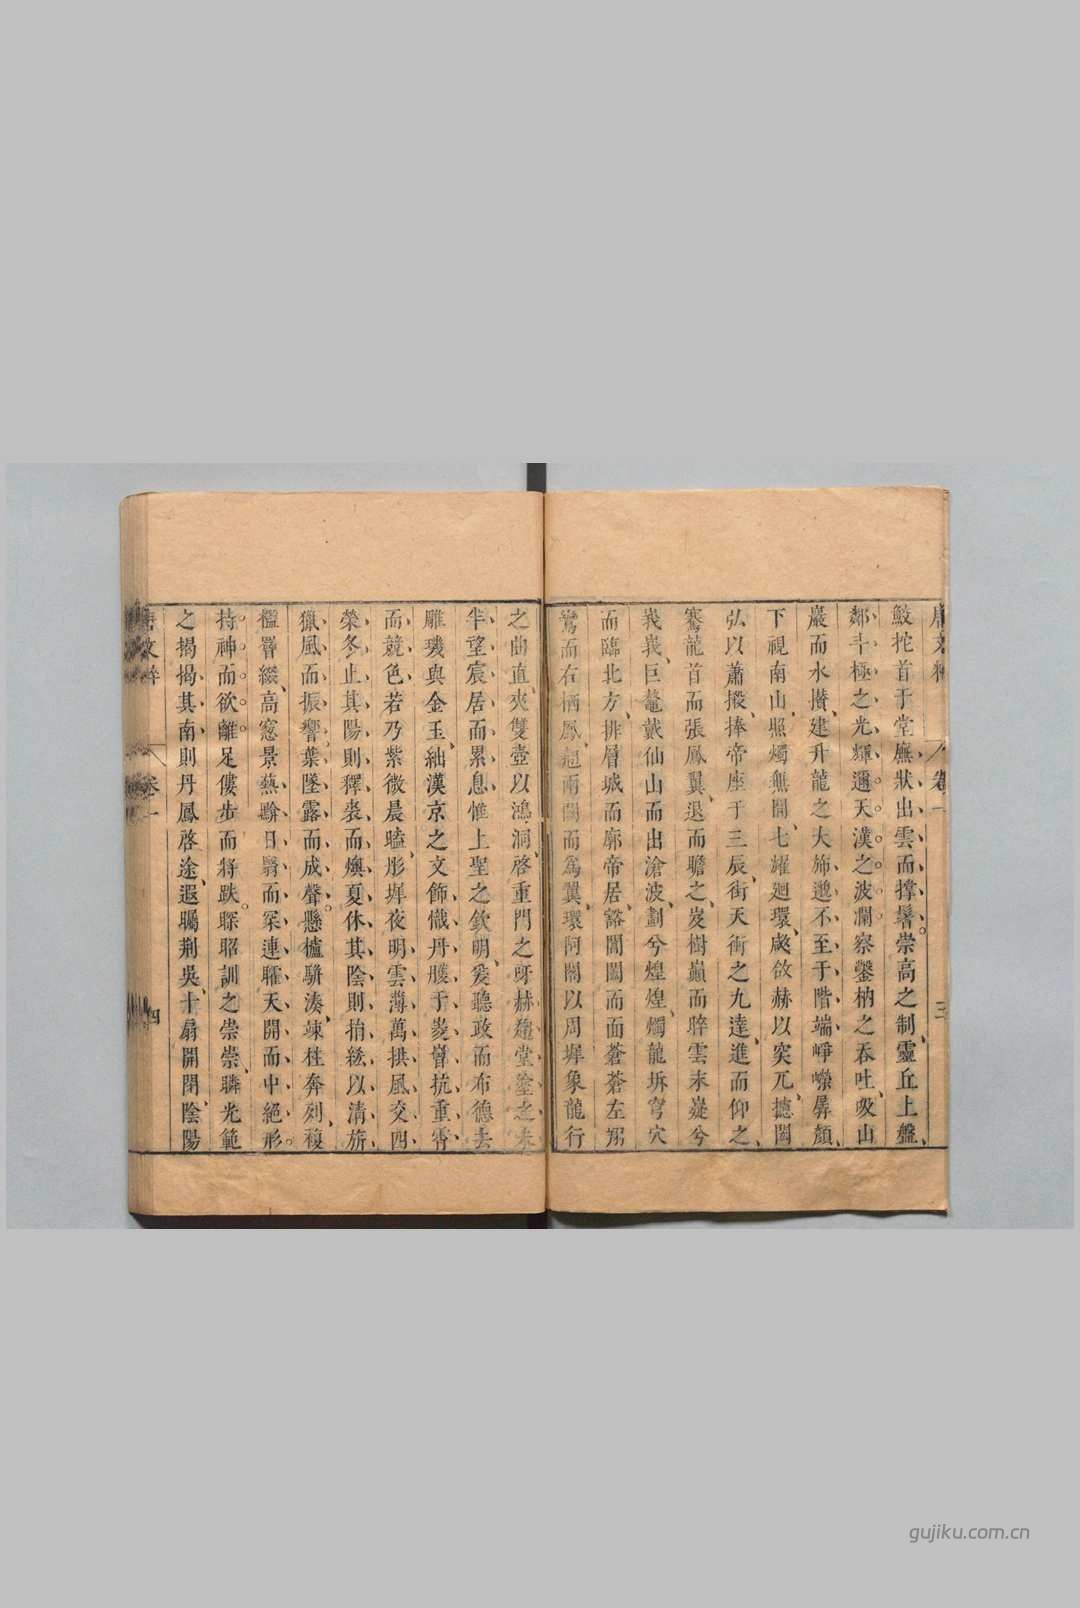 唐文粹 卷一 三
鮫拕首于堂廡狀出雲而撑㬿崇高之制靈丘上盤
鄰斗極之光輝邇天漢之波瀾察鑿枘之吞吐吸山
巖而水攢建升龍之大斾邈不至于階端崢嶸孱顏
下視南山照燭無間七耀迴環歘歛赫以突兀摠閶
弘以蕭摋捧帝座于三辰街天衝之九逵進而仰之
騫龍首而張鳳翼退而瞻之岌樹巔而崪雲末嶷兮
峩峩巨鼇戴仙山而出滄波劃兮煌煌燭龍坼穹穴
而臨北方排層城而廓帝居豁閶闔而面蒼蒼左翔
鸞而右栖鳳翹兩闕而爲翼環阿閣以周墀象龍行
之曲直夾雙壺以鴻洞啓重門之呀赫趨堂塗之未
半望宸居而累息惟上聖之欽明爰聽政而布德去
雕璣與金玉絀漢京之文飾熾丹雘于崣嶜抗重霄
而競色若乃紫微晨曀彤墀夜明雲薄萬拱風交四
榮冬止其陽則釋裘而燠夏休其陰則抬絺以清旂
獵風而振響葉墜露而成聲懸攎駢湊竦柱奔列複
櫨疊綴高窓景爇黭日翳而罙連矐天開而中絕形
持神而欲離足僂步而將跌睬昭訓之崇崇驎光範
之揭揭其南則丹鳳啓途遐矚荆吳十扇開閉陰陽
唐文粹 卷一 四
gujiku.com.cn